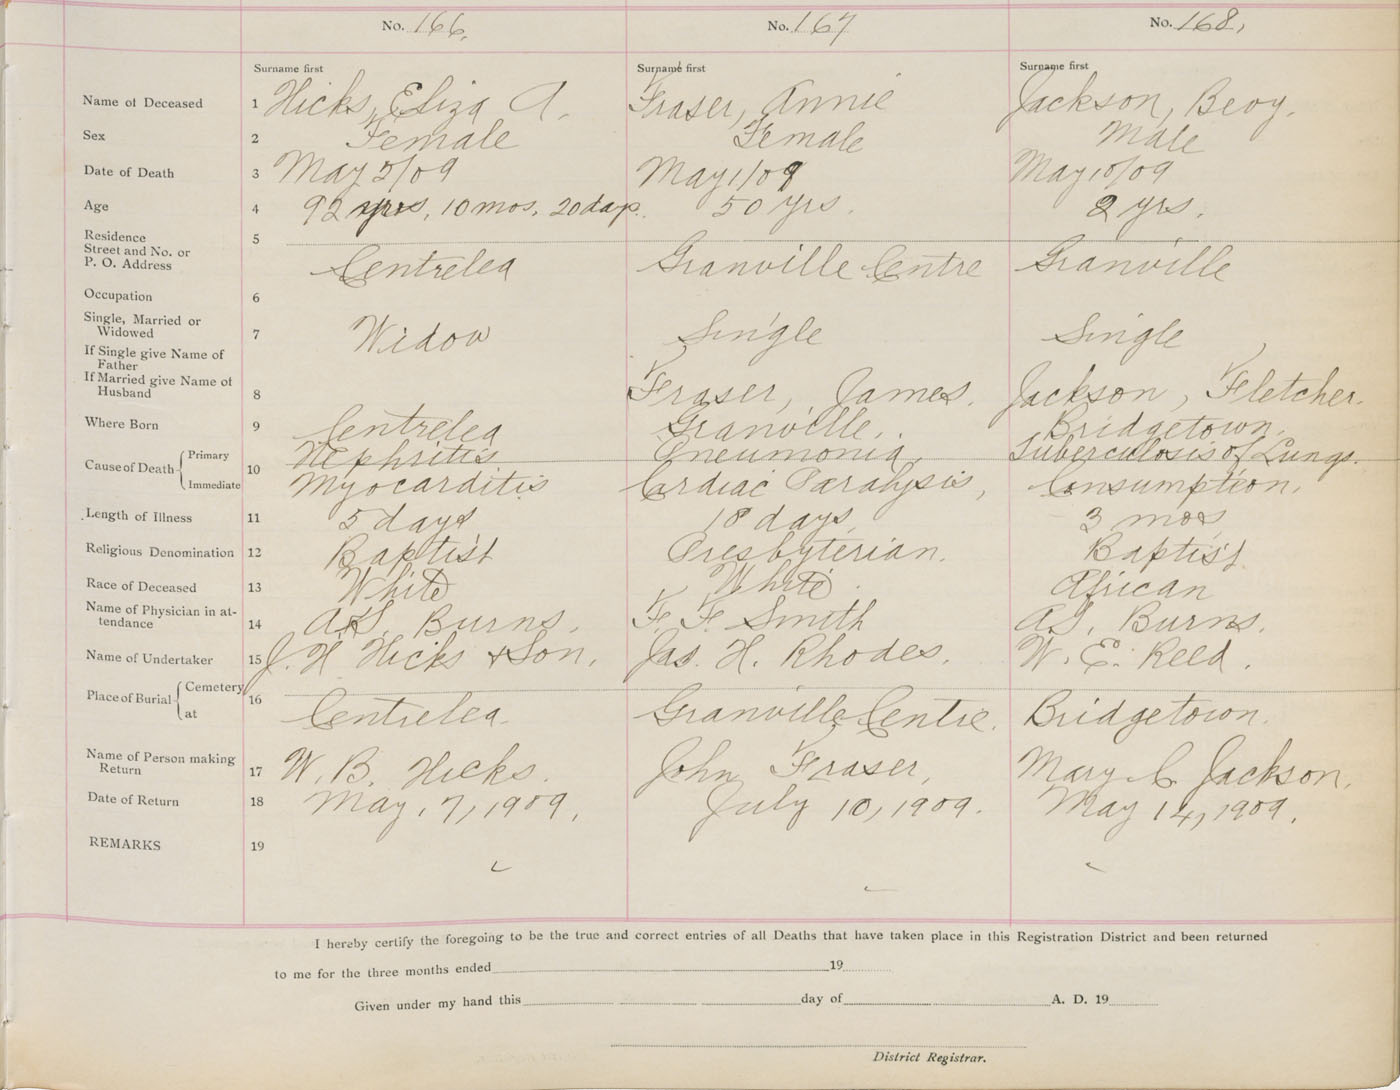 No. 166. No. 167 No. 168.
Surname first Surname first Surname first
Name of Deceased 1 Hicks, Eliza A. Fraser, Annie Jackson, Beoy.
Sex 2 Female Female Male
Date of Death 3 May 5/09 May 1/09 May 10/09
Age 4 92 yrs, 10 mos, 20 days. 50 yrs. 2 yrs.
Residence
Street and No. or
P. O. Address 5 Centrelea Granville Centre Granville
Occupation 6
Single, Married or
Widowed 7 Widow Single Single
If Single give Name of
Father
If Married give Name of
Husband 8 Fraser, James. Jackson, Fletcher.
Where Born 9 Centrelea Granville. Bridgetown.
Cause of Death Primary Nephritis Pneumonia, Tuberculosis of Lungs.
10 Immediate Myocarditis Cardiac Paralysis, Consumption.
Length of Illness 11 5 days 18 days, 3 mos
Religious Denomination 12 Baptist Presbyterian. Baptist.
Race of Deceased 13 White White African
Name of Physician in at-
tendance 14 A.S. Burns. F. F. Smith A.S. Burns.
Name of Undertaker 15 J. H Hicks & Son. Jas. H. Rhodes. W. E. Reed.
Place of Burial Cemetery
at 16 Centrelea Granville Centre. Bridgetown.
Name of Person making
Return 17 W. B. Hicks. John Fraser, Mary C Jackson.
Date of Return 18 May, 7, 1909. July 10, 1909. May 14, 1909.
REMARKS 19
I hereby certify the foregoing to be the true and correct entries of all Deaths that have taken place in this Registration District and been returned
to me for the three months ended 19
Given under my hand this day of A. D. 19
District Registrar.